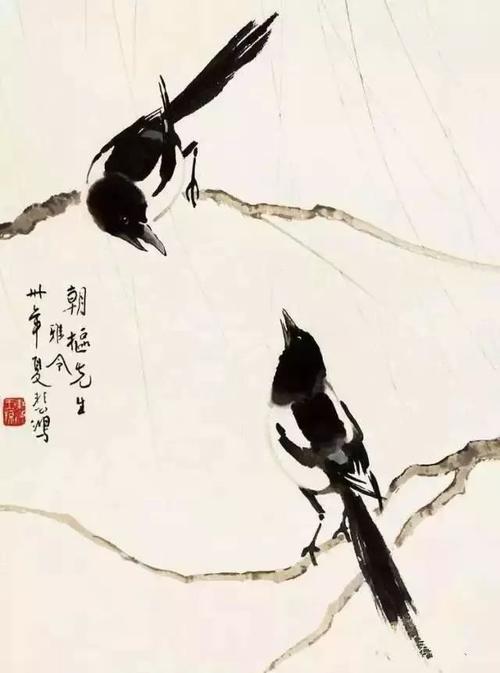 朝樞先生
雅令
卅年夏悲鴻